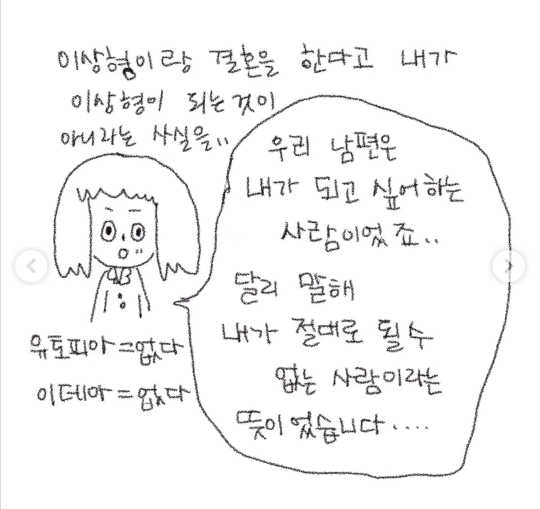 이상형이랑 결혼을 한다고 내가
이상형이 되는것이
아니라는 사실을..
우리 남편은
내가 되고 싶어하는
사람이었죠..
달리 말해
내가 절대로 될수
없는 사람이라는
뜻이었습니다....
유토피아=없다
이데아=없다